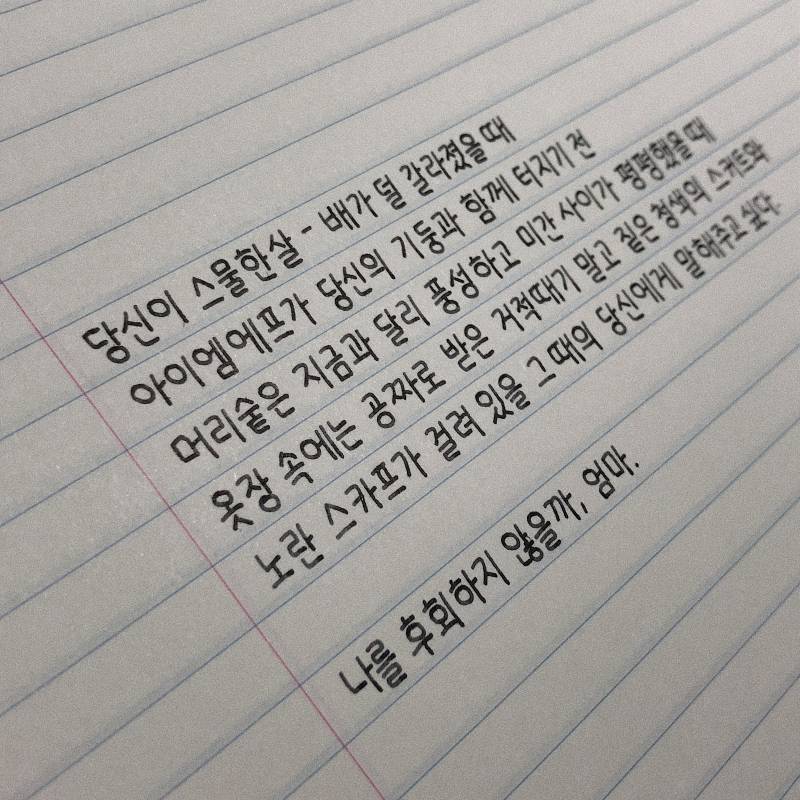 당신이 스물한살 - 배가 덜 갈라졌을 때
아이엠에프가 당신의 기둥과 함께 터지기 전
머리숱은 지금과 달리 풍성하고 미간 사이가 평평했을 때
옷장 속에는 공짜로 받은 거적때기 말고 짙은 청색의 스커트와
노란 스카프가 걸려 있을 그때의 당신에게 말해주고 싶다.
나를 후회하지 않을까, 엄마.